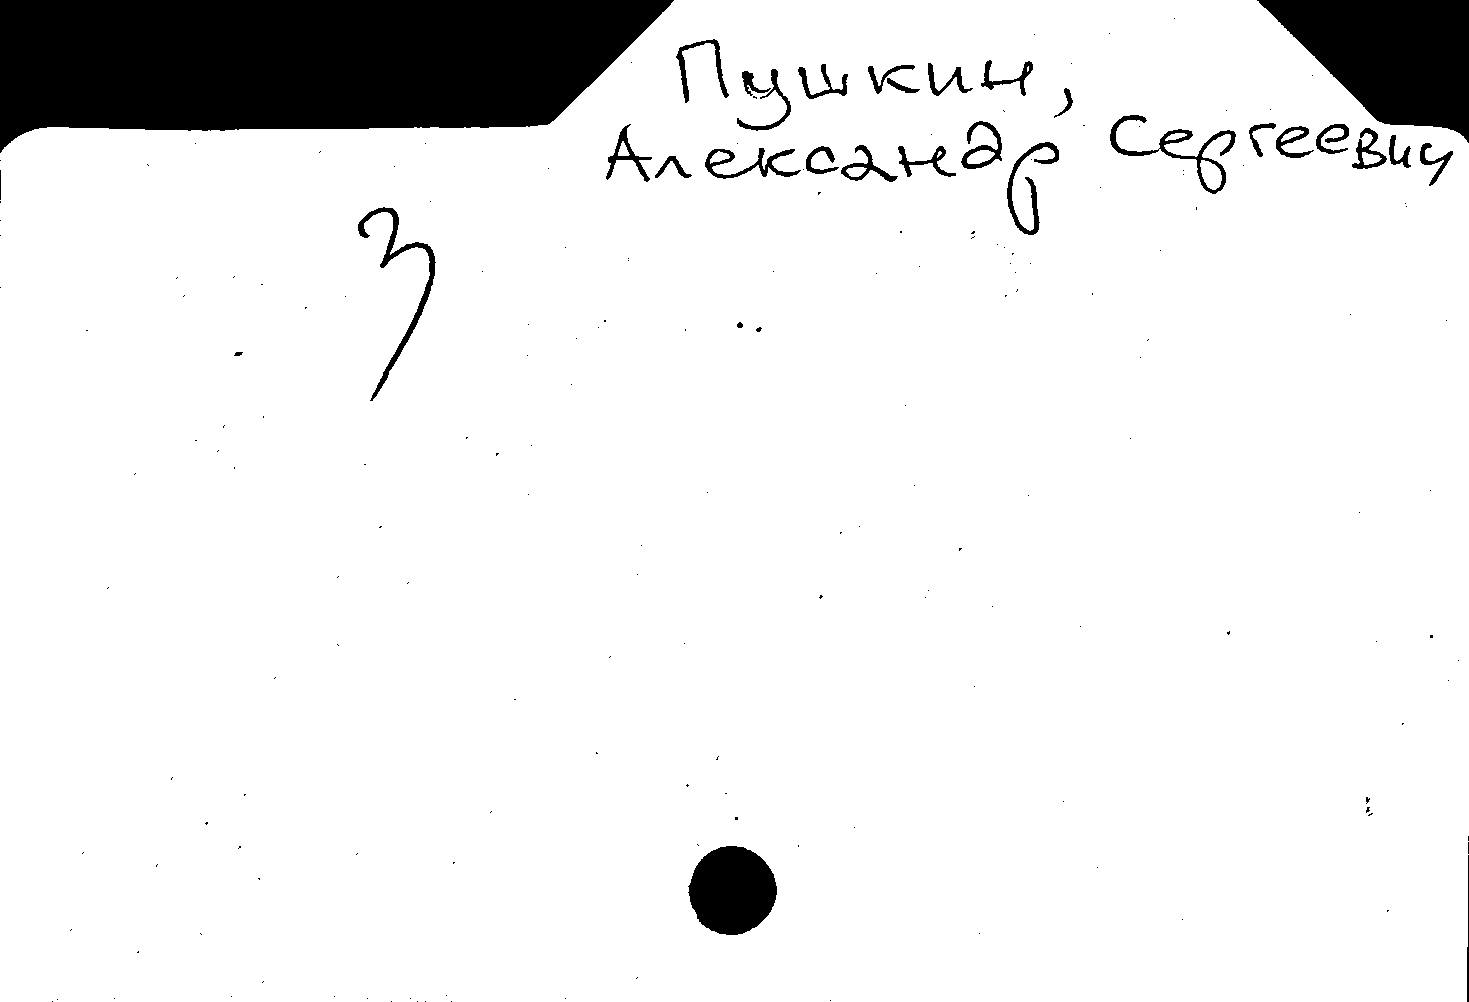 Пушкин,
Александр Сергеевич
3